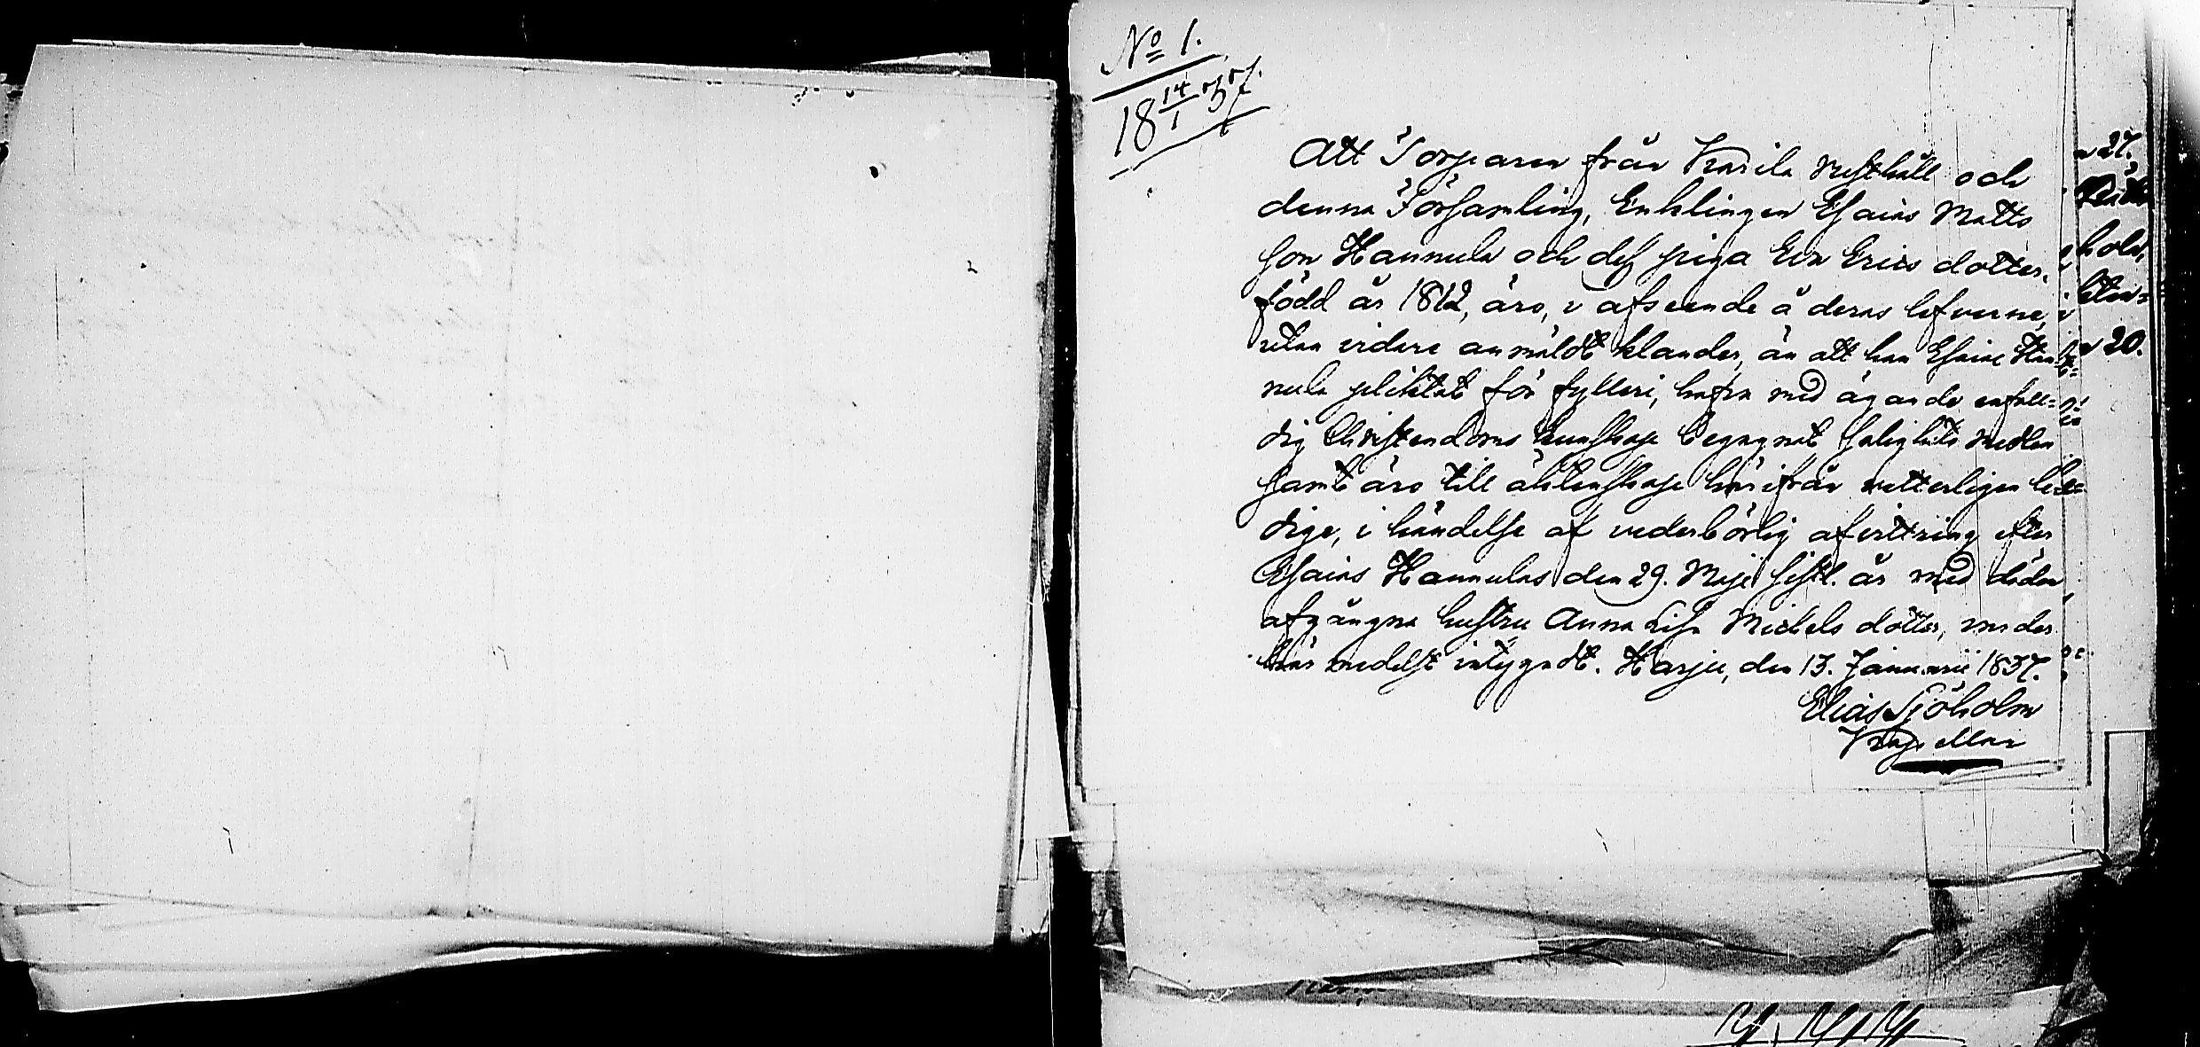 No 1.
18 14/1 37.
Att Torparen från Karila Rusthåll och
denna Församling, Enklingen Esaias Matts
son Hannula och dess piga Eva Erics dotter,
född år 1812, äro, i afseende å deras lefverne,
utan vidare anmäldt klander, än att han Esaias Han
nula pliktat för fylleri, hafva med ägande enfall=
dig Christendoms kunskap begagnat salighets medlen
samt äro till äktenskap härifrån vetterligen le=
dige, i händelse af vederbörlig afvittring efter
Esaias Hannulas den 29. Maji sistl. år med döden
afgångna hustru Anna Lisa Michels dotter, varder
här medelst intygadt. Harju, den 13. Januarii 1837.
Elias Sjöholm
Kapellan
27.
holm,
20.